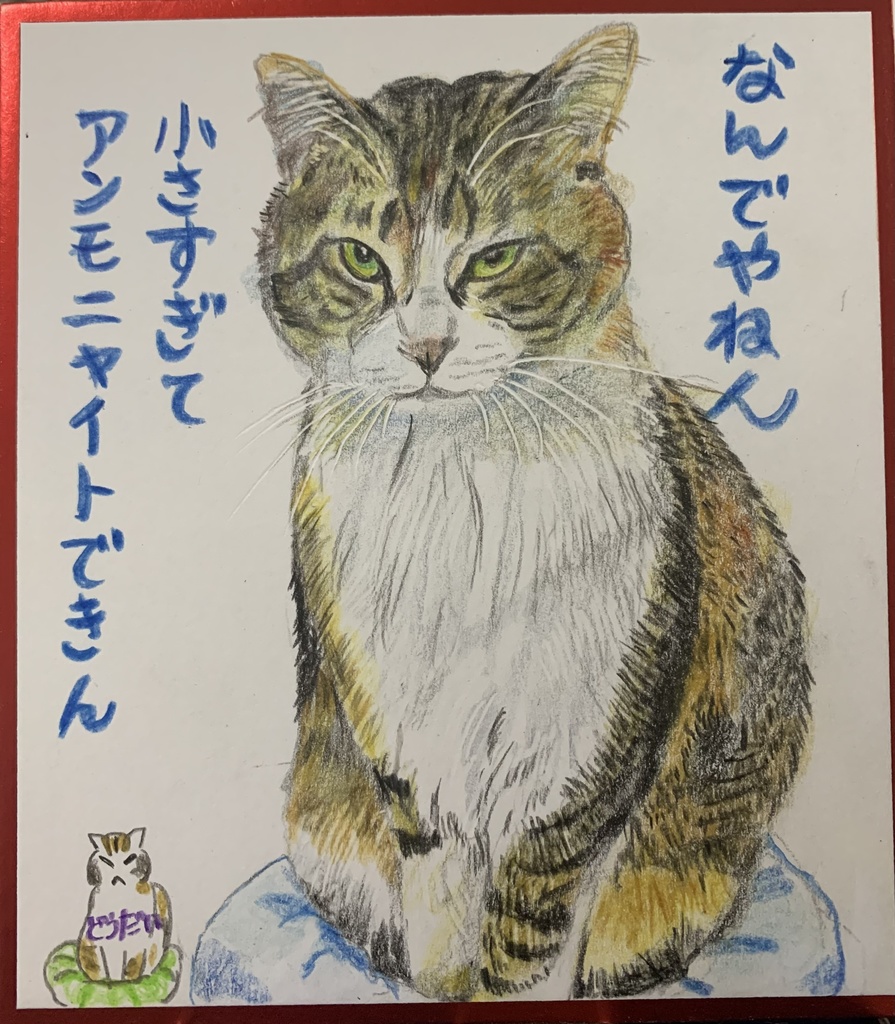 なんでやねん
小さすぎて
アンモニャイトできん
どうだい